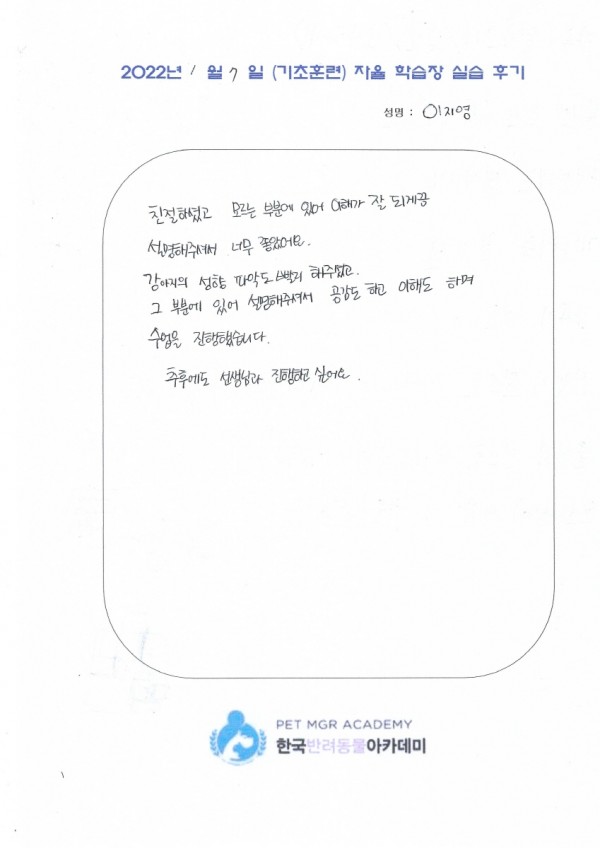 2022년 1 월 7 일 (기초훈련) 자율 학습장 실습 후기
성명 : 이지영
친절하셨고 모르는 부분에 있어 이해가 잘 되게끔
설명해주셔서 너무 좋았어요.
강아지의 성향 파악도 빨리 해주셨고.
그 부분에 있어 설명해주셔서 공감도 하고 이해도 하며
수업을 진행했습니다.
추후에도 선생님과 진행하고 싶어요.
PET MGR ACADEMY
한국반려동물아카데미